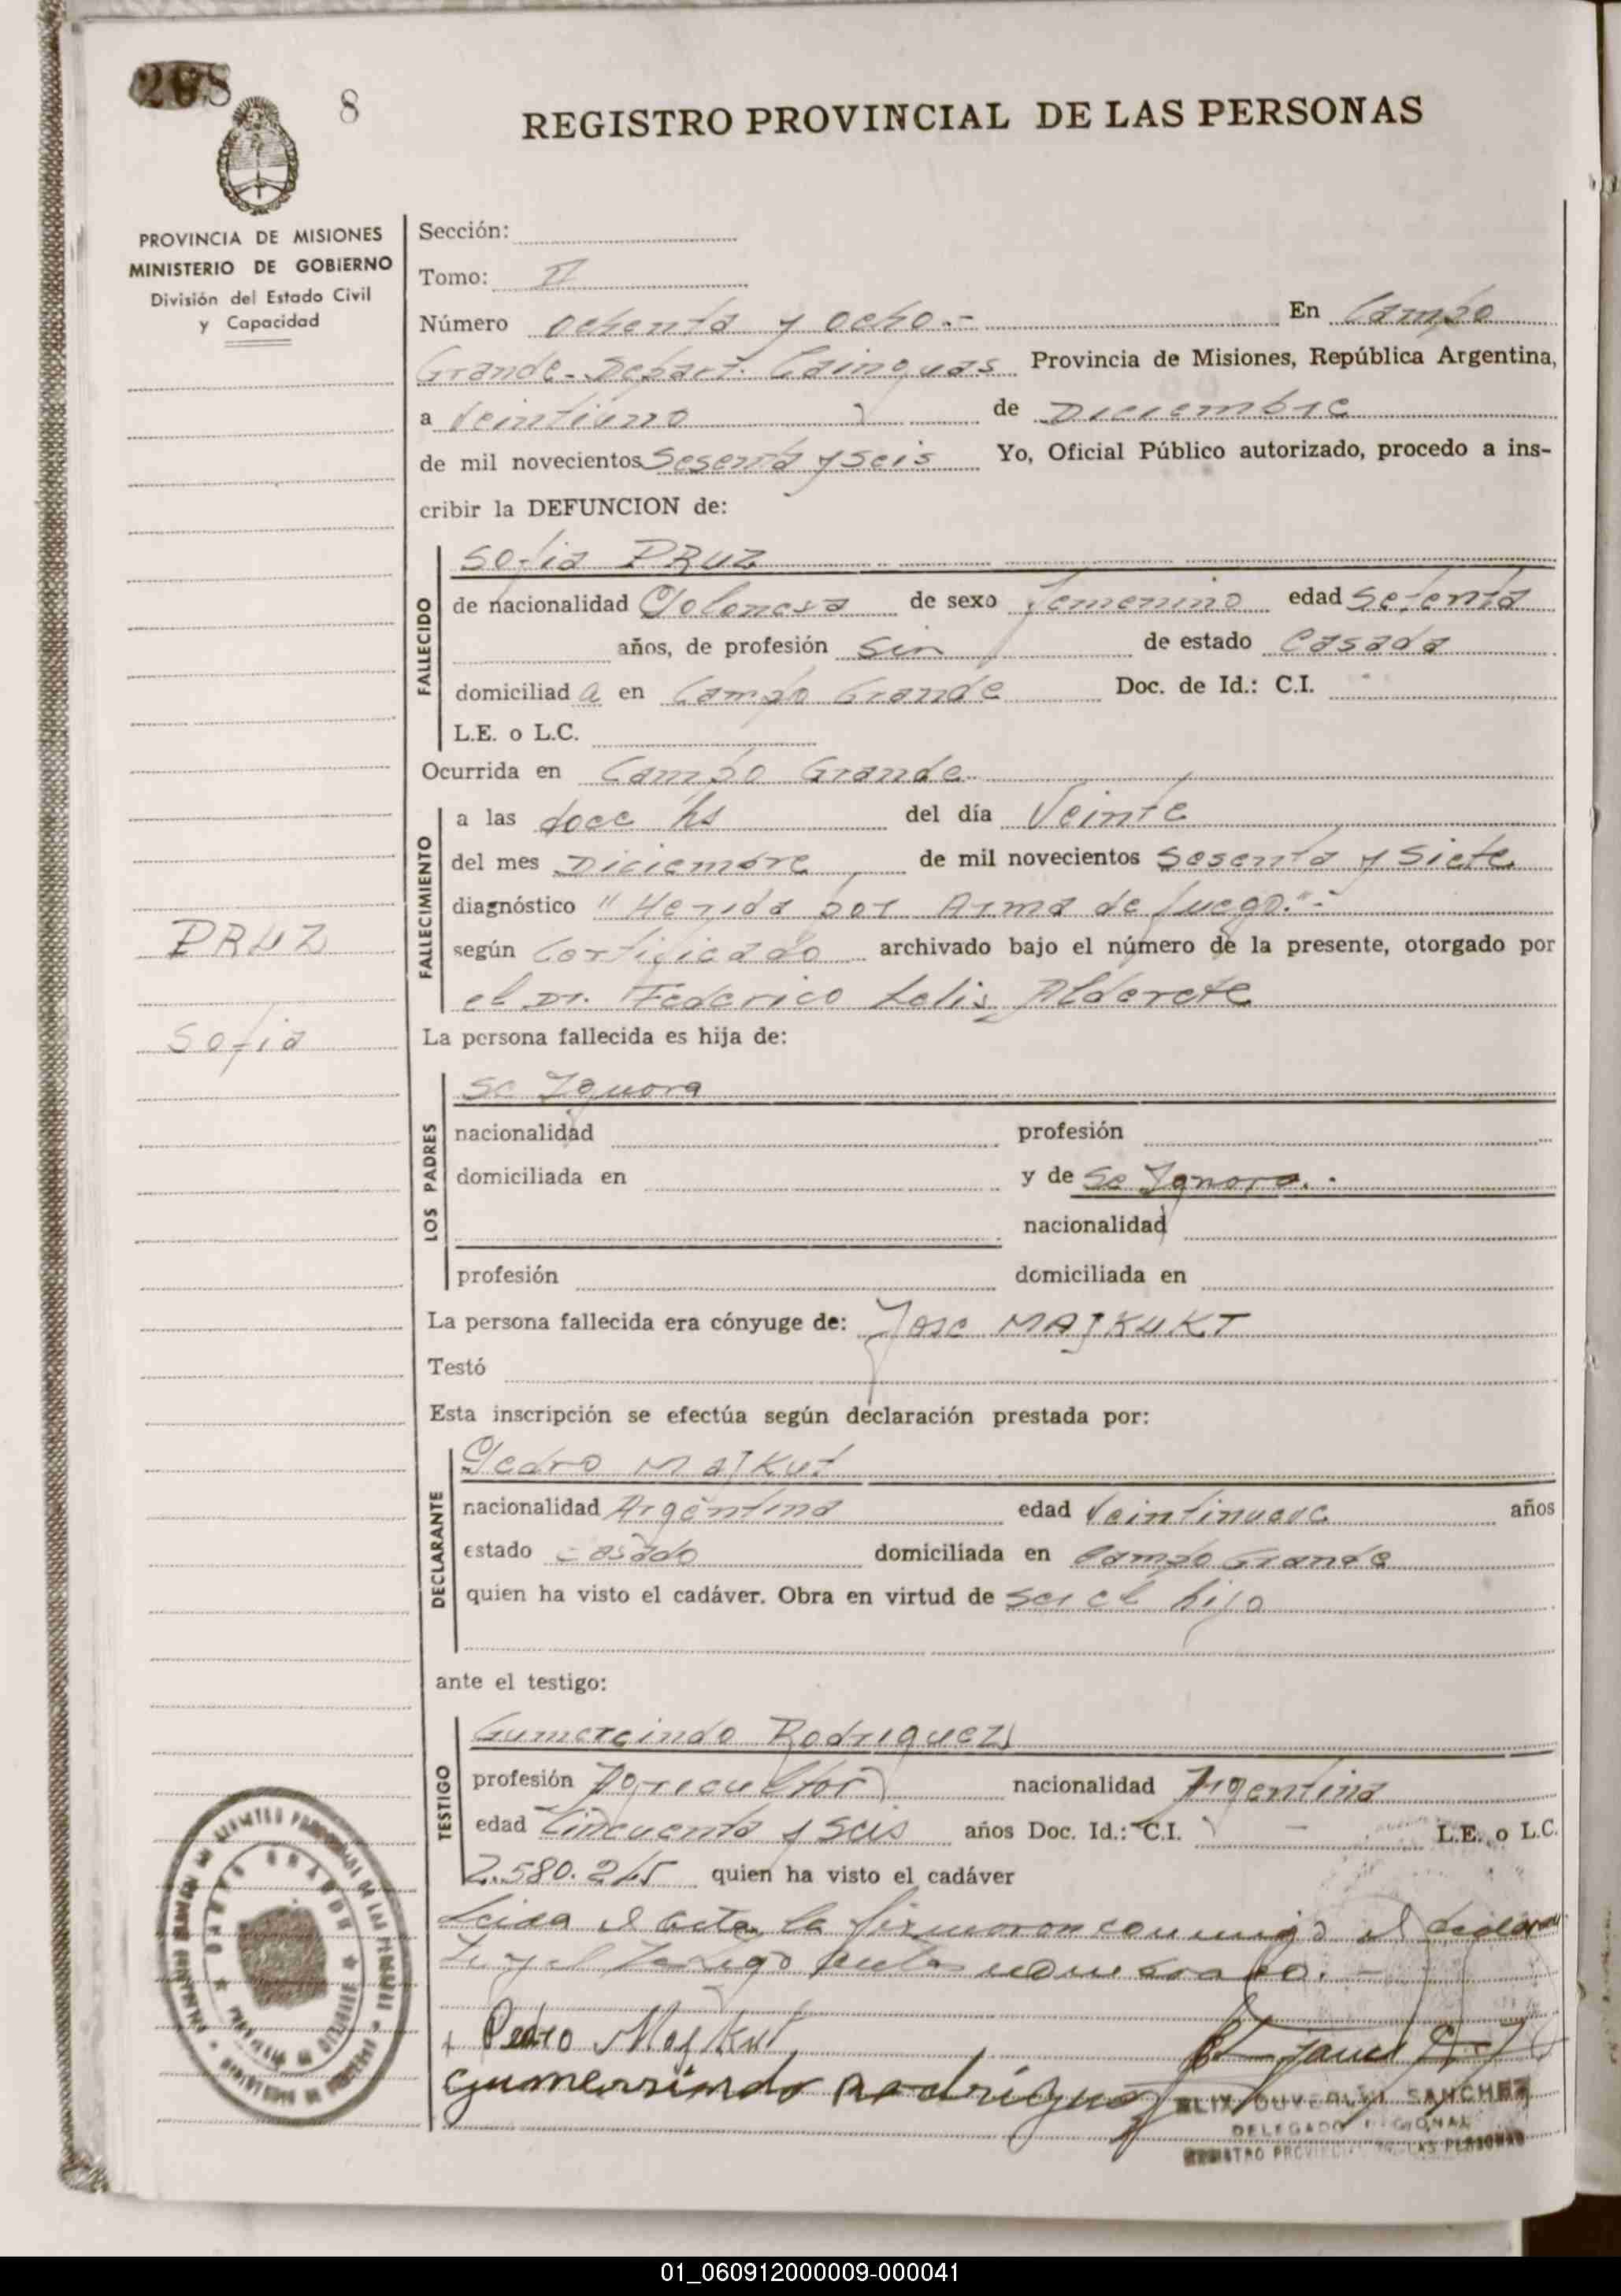 208
8
REGISTRO PROVINCIAL DE LAS PERSONAS
PROVINCIA DE MISIONES
MINISTERIO DE GOBIERNO
División del Estado Civil
y Capacidad
Sección:
Tomo: II
Número ochenta y ocho.- En Campo
Grande - Depart. Cainguas Provincia de Misiones, República Argentina,
a Veintiuno de Diciembre
de mil novecientos Sesenta y Seis Yo, Oficial Público autorizado, procedo a ins-
cribir la DEFUNCION de:
FALLECIDO
Sofia PRUZ
de nacionalidad Polonesa de sexo femenino edad Setenta
años, de profesión Sin de estado Casada
domiciliad a en Campo Grande Doc. de Id.: C.I.
L.E. o L.C.
Ocurrida en Campo Grande
FALLECIMIENTO
a las doce hs del día Veinte
del mes Diciembre de mil novecientos Sesenta y Siete
diagnóstico "Herida por Arma de fuego."-
según Certificado archivado bajo el número de la presente, otorgado por
el Dr. Federico Lelis Alderete
PRUZ
Sofia
La persona fallecida es hija de:
LOS PADRES
Se Ignora
nacionalidad profesión
domiciliada en y de Se Ignora.-
nacionalidad
profesión domiciliada en
La persona fallecida era cónyuge de: Jose MAJKUKT
Testó
Esta inscripción se efectúa según declaración prestada por:
DECLARANTE
Pedro MAJKUt
nacionalidad Argentina edad Veintinueve años
estado Casado domiciliada en Campo Grande
quien ha visto el cadáver. Obra en virtud de ser el hijo
ante el testigo:
TESTIGO
Gumercindo Rodriguez
profesión Agricultor nacionalidad Argentina
edad Cincuenta y Seis años Doc. Id.: C.I. - L.E. o L.C.
2.580.245 quien ha visto el cadáver
Leida el acta la firmaron conmigo el declaran
te y el testigo antes nombrado.-
+ Pedro Majkut
Gumersindo Rodriguez
SANCHEZ
DELEGADO REGIONAL
REGISTRO PROVINCIAL DE LAS PERSONAS
01_060912000009-000041